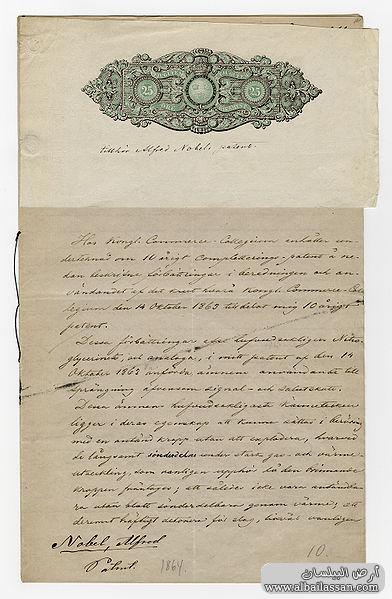 25 25
tillhör Alfred Nobels patent.
Hos Kongl. Commerce-Collegium anhåller un-
dertecknad om 10 årigt Completterings-patent å ne-
dan beskrifne förbättringar i beredningen och an-
vändandet af det krut hvarå Kongl. Commerce-Col-
legium den 14 Oktober 1863 tilldelat mig 10 årigt
patent.
Dessa förbättringar afse hufvudsakligen Nitro-
glycerinets, och analoga, i mitt patent af den 14
Oktober 1863 anförda ämnens användande till
sprängning äfvensom signal- och salutskott.
Dessa ämnens hufvudsakligaste kännetecken
ligger i deras egenskap att kunna sättas i beröring
med en antänd kropp utan att explodera, hvarvid
de långsamt sönderdelas under stark gas- och värme-
utveckling, som vanligen upphör då den brinnande
kroppen ; att således icke vara antändba-
ra utan blott sönderdelbara genom värme; att
deremot häftigt detonera för slag, hvarvid vanligen
Nobel, Alfred
Patent.
1864.
10.
أرض البيلسان
www.albailassan.com